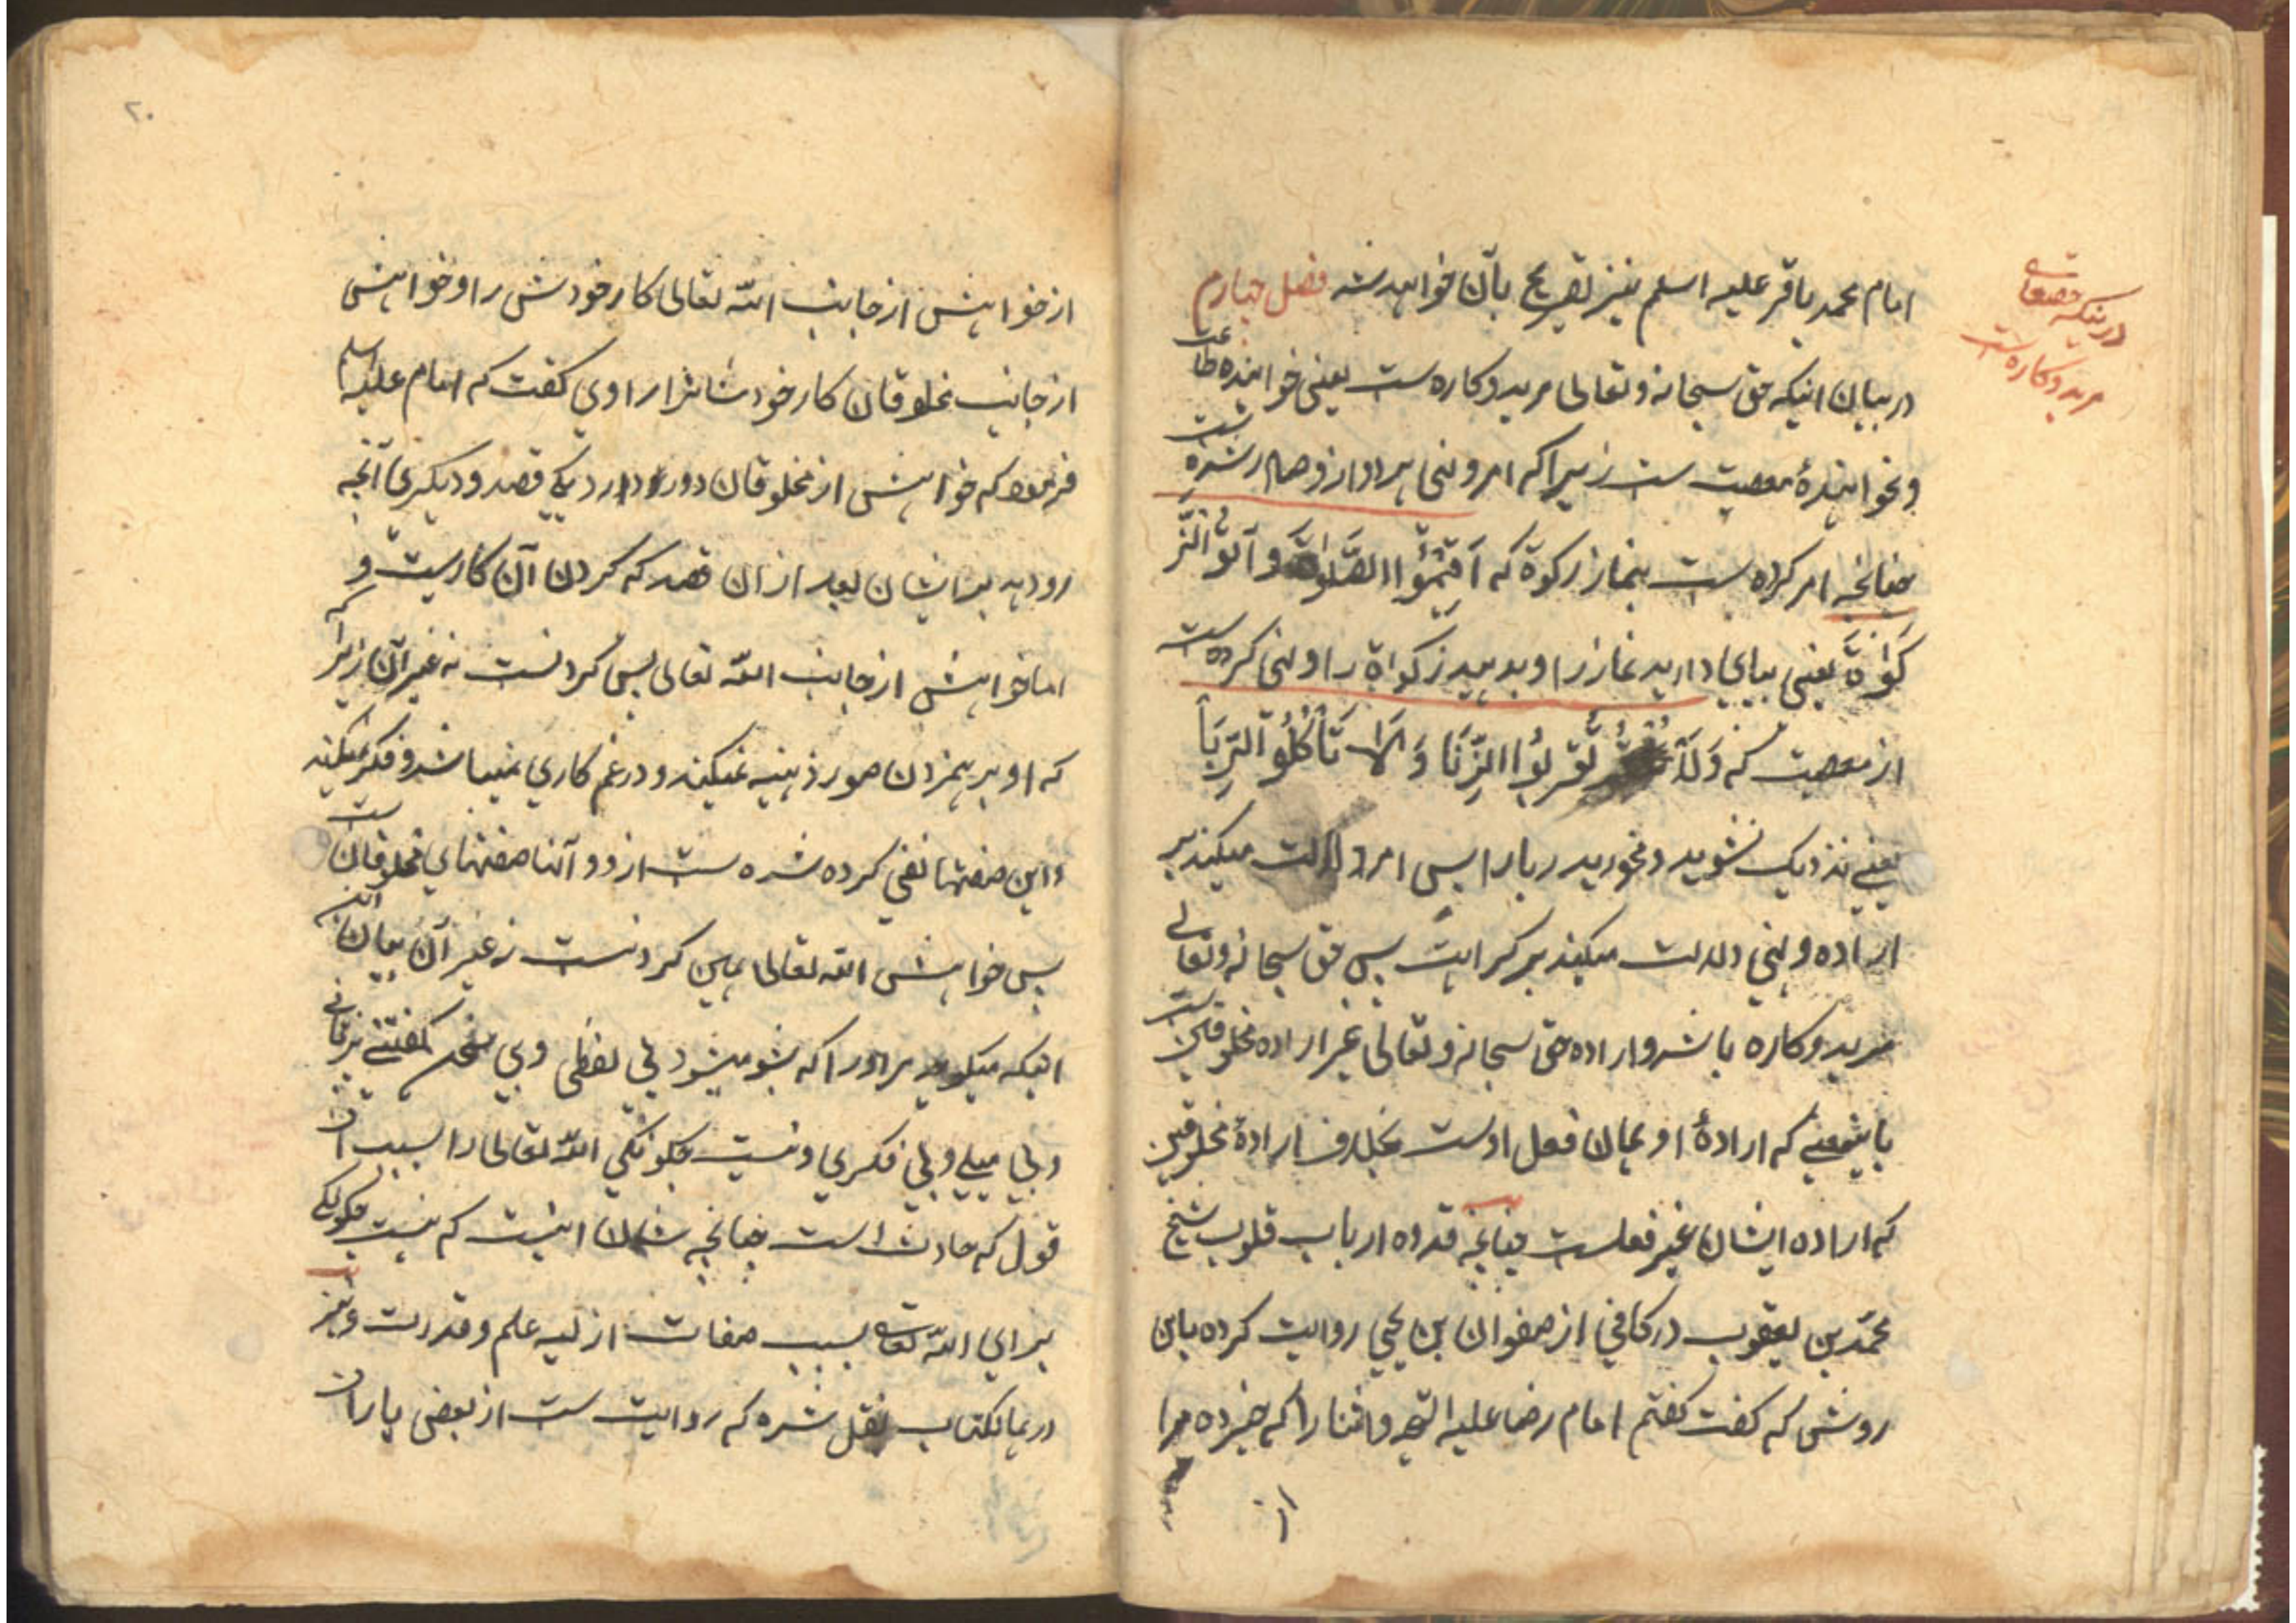 امام محمد باقر علیه اسلم نیز تصریح بآن خواهد شد فصل چهارم
در بیان اینکه حق سبحانه و تعالی مرید و کاره ست یعنی خواهندهٔ طاعت
و نخواهندهٔ معصیت ست زیرا که امر و نهی هر دو ازو صادر شده ست
چنانچه امر کرده ست بنماز زکوة که اَقیمُوا الصَّلوٰةَ و آتوُا الزَّ
کَوٰاةَ یعنی بپای دارید نماز را و بدهید زکواة را و نهی کرده ست
از معصیت که وَلَا تَقرَبُوا الزِّنَا وَ لَا تَأکُلُو الرِّبَا
یعنی نزدیک نشوید و نخورید ربا را پس امر دلالت میکند بر
اراده و نهی دلالت میکند بر کراهت پس حق سبحانه و تعالی
مرید و کاره باشد و ارادهٔ حق سبحانه و تعالی غیر ارادهٔ مخلوقین ست
باینمعنی که ارادهٔ او همان فعل اوست بخلاف ارادهٔ مخلوقین
که اراده ایشان غیر فعلست چنانچه قدوه ارباب قلوب شیخ
محمّد بن یعقوب در کافی از صفوان بن یحیی روایت کرده باین
روش که گفت گفتم امام رضا علیه التحیه والثنا را که خبر ده مرا
از
در بیان اینکه حقتعالی
مرید و کاره ست
۲۰
از خواهش از جانب اللّه تعالی کار خودش را و خواهش
از جانب مخلوقان کار خودشانرا راوی گفت که امام علیه اسلم
فرمود که خواهش از مخلوقان دو را دارد یکی قصد و دیگری آنچه
رو دهد بر ایشان بعد از آن قصد که کردن آن کارست و
اما خواهش از جانب اللّه تعالی پس کردنست نه غیر آن زیرا که
که او بر همزدن صور ذهنیه نمیکند و در غم کاری نمیباشد و فکر نمیکند
و این صفتها نفی کرده شده ست ازو و آنها صفتهای مخلوقان ست
پس خواهش اللّه تعالی همین کردنست نه غیر آن بیان آن
اینکه میگوید مر او را که بشو میشود بی لفظی و بی سخن گفتنی بزبانی
و بی میلی و بی فکری و نیست چگونگی اللّه تعالی را بسبب آن
قول که حادث است چنانچه شان اینست که نیست چگونگی
برای اللّه تعالی بسبب صفات ازلیه علم و قدرت و نیز
در همانکتاب نقل شده که روایت ست از بعضی یاران